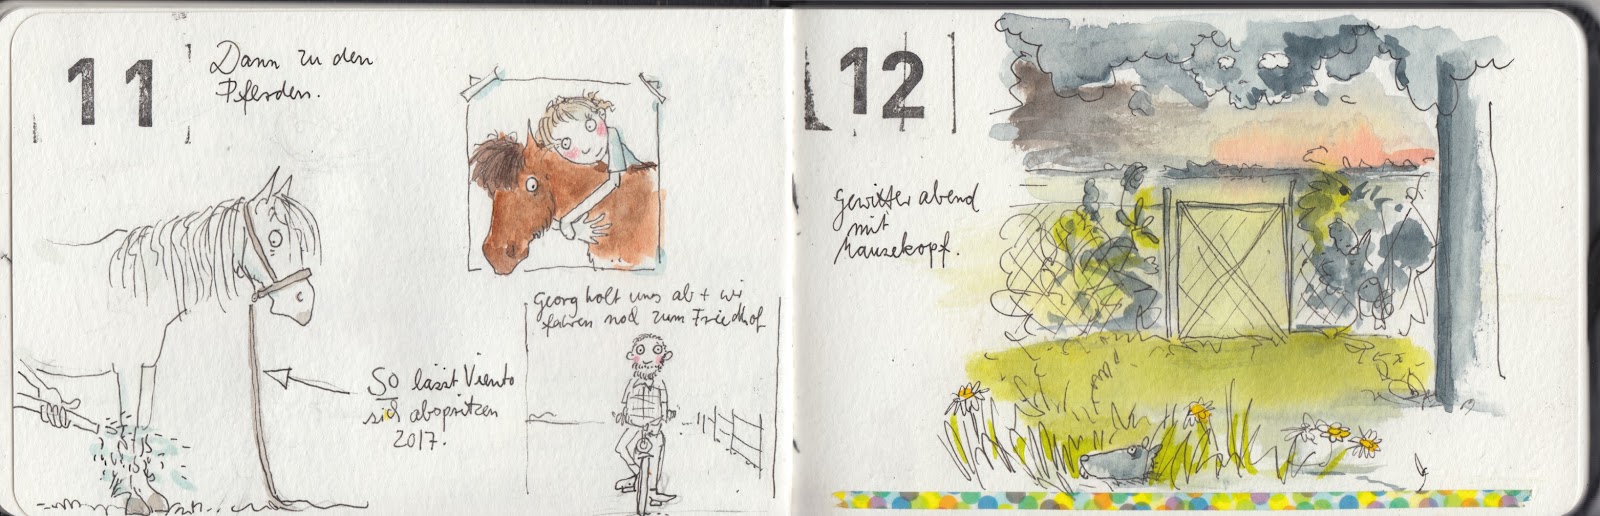 11
Dann zu den
Pferden.
Georg holt uns ab + wir
fahren noch zum Friedhof
So lässt Viento
sich abspritzen
2017.
12
Gewitterabend
mit
Mausekopf.